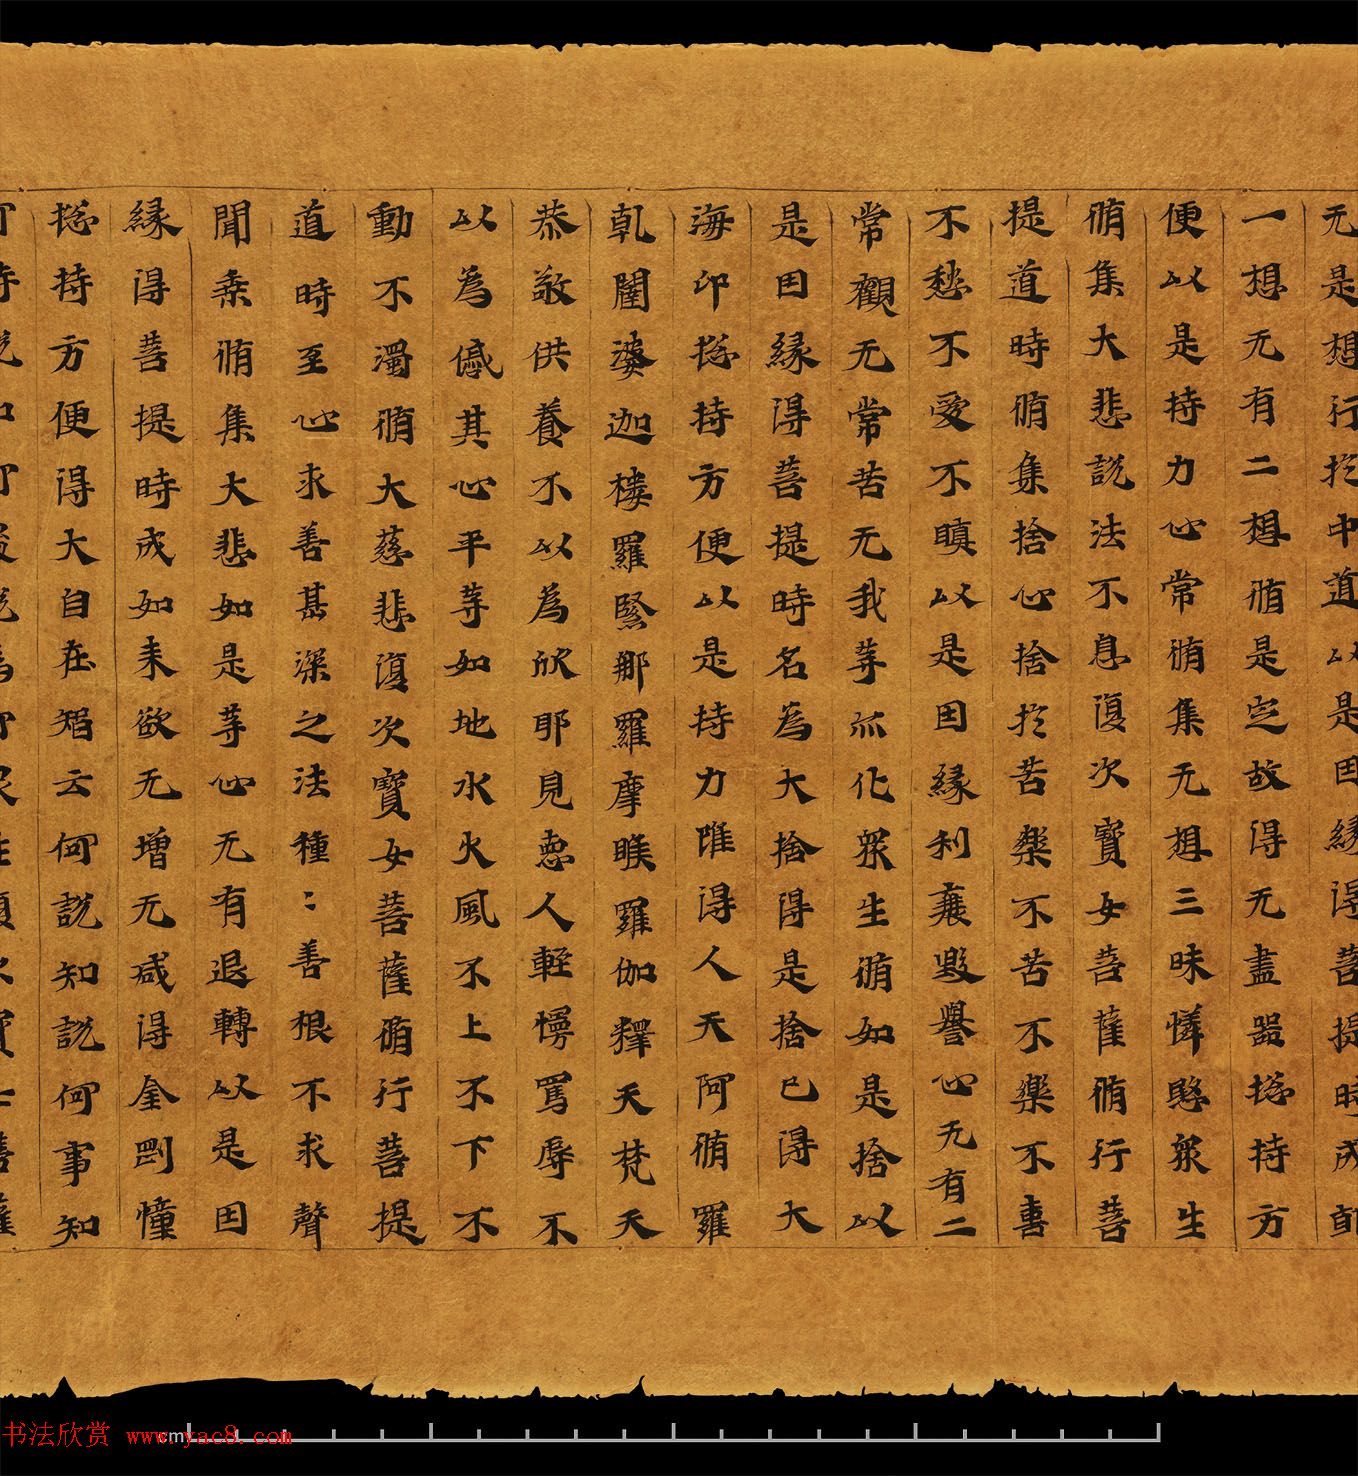 无是想行扵中道以是因縁得菩提時成就
一想无有二想脩是定故得无盡器揔持方
便以是持力心常脩集无想三昧憐愍眾生
脩集大悲說法不息復次寶女菩薩脩行菩
提道時脩集捨心捨扵苦樂不苦不樂不喜
不愁不愛不瞋以是因緣利衰毀譽心无有二
常觀无常苦无我等亦化眾生脩如是捨以
是因緣得菩提時名為大捨得是捨已得大
海印揔持方便以是持力唯得人天阿脩羅
乹闥婆迦樓羅緊那羅摩睺羅伽釋天梵天
恭敬供養不以為欣耶見惡人輕慢罵辱不
以為慼其心平等如地水火風不上不下不
動不濁脩大慈悲復次寶女菩薩脩行菩提
道時至心求善甚深之法種〻善根不求聲
聞乘脩集大悲如是等心无有退轉以是因
緣得菩提時成如來欲无增无減得金剛憧
揔持方便得大自在智云何說知說何事知